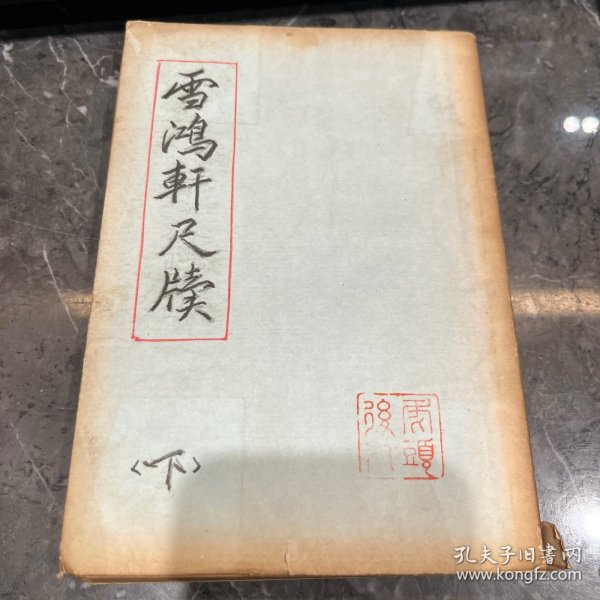 雪鴻軒尺牘
〈下〉
孔夫子旧書网
www.kongfz.com